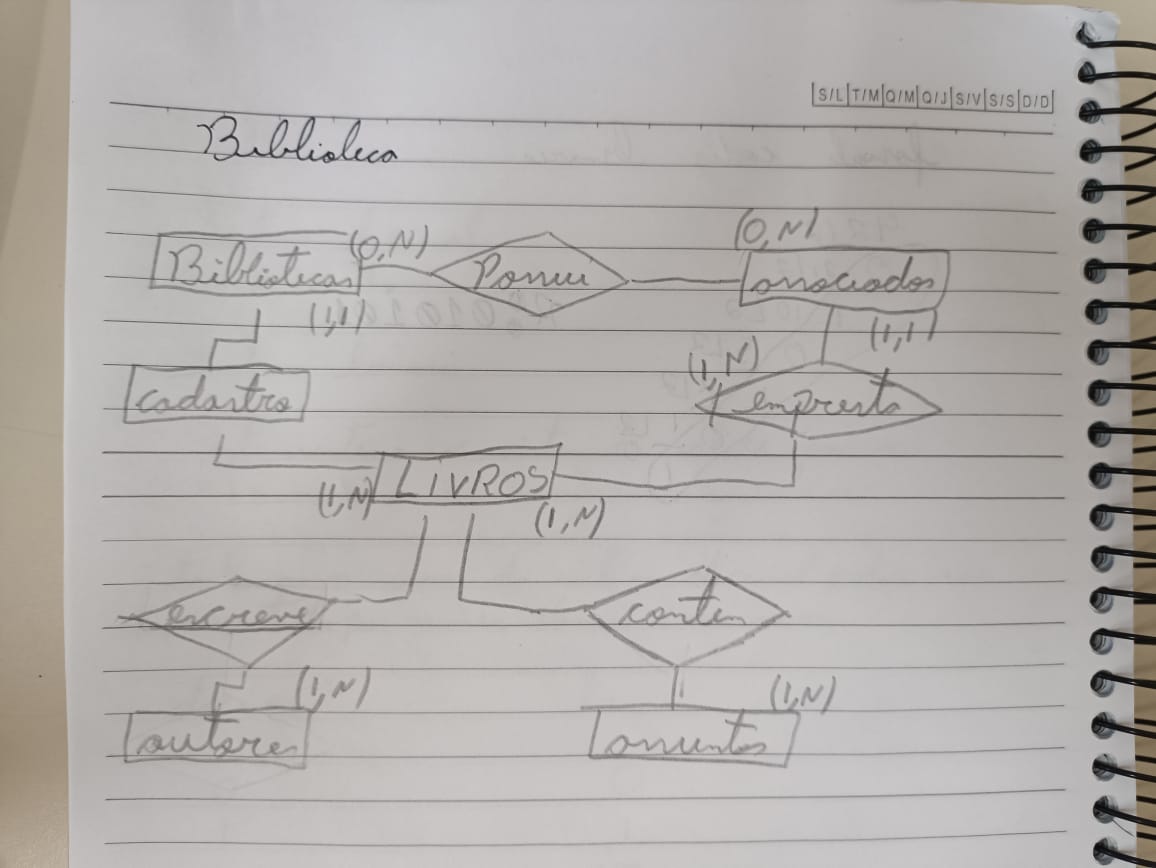 S/L T/M Q/M Q/J S/V S/S D/D
Biblioteca
Bibliotecas (0,N) Possui (0,N) associados
(1,1) (1,1)
cadastro (1,N) empresta
(1,N) LIVROS (1,N)
escreve contem
(1,N) (1,N)
autores assuntos